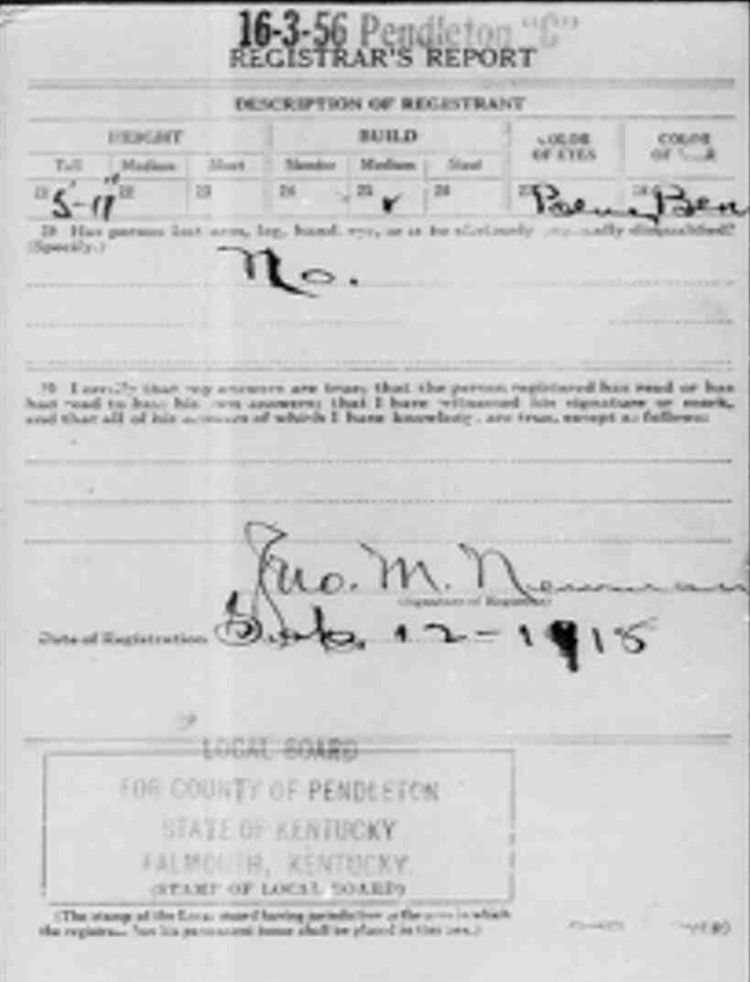 16-3-56 Pendleton "C"
REGISTRAR'S REPORT
DESCRIPTION OF REGISTRANT
HEIGHT BUILD COLOR OF EYES COLOR OF
Tall Medium Short Slender Medium Stout
21 5'-11" 22 23 24 25 26 27
29 Has person lost arm, leg, hand, eye, or is he obviously physically disqualified?
(Specify.)
No.
30 I certify that my answers are true; that the person registered has read or has
had read to him his own answers; that I have witnessed his signature or mark,
and that all of his answers of which I have knowledge are true, except as follows:
Jno. M. Newman
(Signature of Registrar)
Date of Registration 12-1918
LOCAL BOARD
FOR COUNTY OF PENDLETON
STATE OF KENTUCKY
FALMOUTH, KENTUCKY.
(STAMP OF LOCAL BOARD)
(The stamp of the Local Board having jurisdiction of the area in which
the registrant has his permanent home shall be placed in this box.)